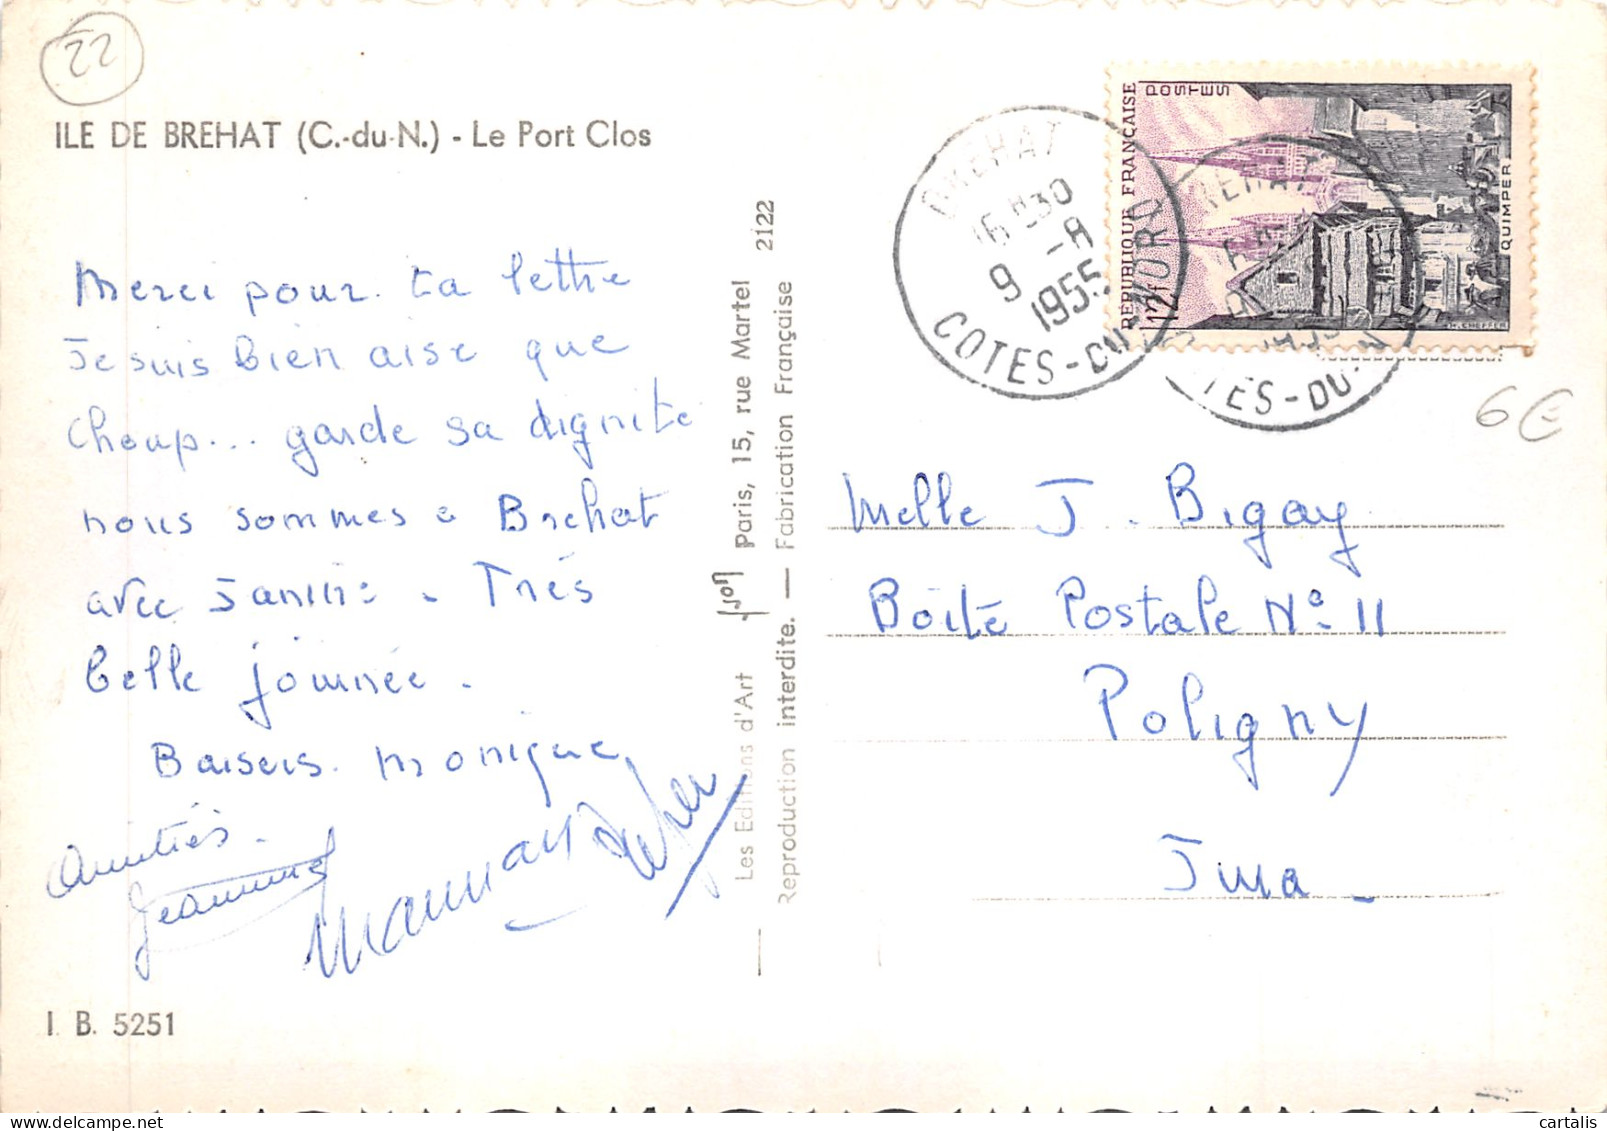 22
ILE DE BREHAT (C.-du-N.) - Le Port Clos
Merci pour ta lettre
Je suis bien aise que
Choup... garde sa dignité
nous sommes a Brehat
avec Janine. Très
belle journée.
Baisers. Monique
Amitiés.
I. B. 5251
Les Editions d'Art Paris, 15, rue Martel 2122
Reproduction interdite. — Fabrication Française
RÉPUBLIQUE FRANÇAISE
POSTES
12f
QUIMPER
BREHAT
16 H30
9 -8
1955
COTES-DU-NORD
6 €
Melle J. Bigay
Boîte Postale N° 11
Poligny
Jura
cartalis